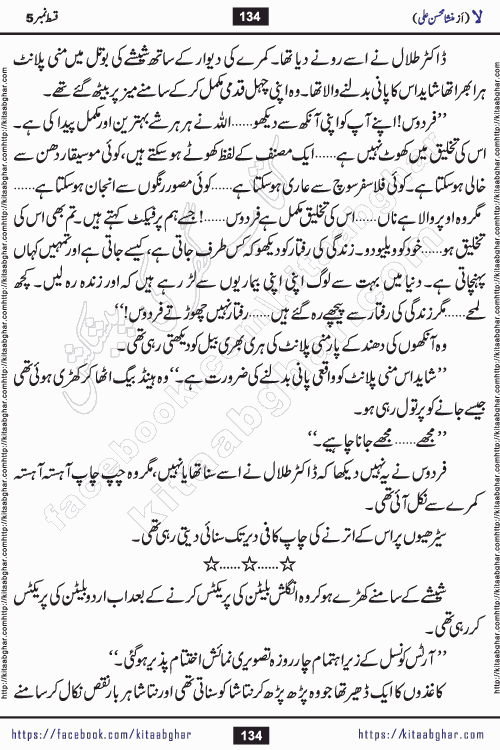 قسط نمبر 5
134
لا (از منشا محسن علی)
ڈاکٹر طلال نے اسے رونے دیا تھا۔ کمرے کی دیوار کے ساتھ شیشے کی بوتل میں منی پلانٹ
ہرا بھرا تھا شاید اس کا پانی بدلنے والا تھا۔ وہ اپنی چہل قدمی مکمل کر کے سامنے میز پر بیٹھ گئے تھے۔
’’فردوس! اپنے آپ کو اپنی آنکھ سے دیکھو...... اللہ نے ہر ہر شے بہترین اور مکمل پیدا کی ہے۔
اس کی تخلیق میں کھوٹ نہیں ہے...... ایک مصنف کے لفظ کھوٹے ہو سکتے ہیں، کوئی موسیقار دھن سے
خالی ہو سکتا ہے۔ کوئی فلاسفر سوچ سے عاری ہو سکتا ہے...... کوئی مصور رنگوں سے انجان ہو سکتا ہے......
مگر وہ اوپر والا ہے ناں...... اس کی تخلیق مکمل ہے فردوس......! جسے ہم پرفیکٹ کہتے ہیں۔ تم بھی اس کی
تخلیق ہو...... خود کو ویلیو دو۔ زندگی کی رفتار کو دیکھو کہ کس طرف جاتی ہے، کیسے جاتی ہے اور تمہیں کہاں
پہنچاتی ہے۔ دنیا میں بہت سے لوگ اپنی اپنی بیماریوں سے لڑ رہے ہیں کہ اور زندہ رہ لیں۔ کچھ
لمحے...... مگر زندگی کی رفتار سے پیچھے رہ گئے ہیں...... رفتار نہیں چھوڑتے فردوس!‘‘
وہ آنکھوں کی دھند کے پار منی پلانٹ کی ہری بھری بیل کو دیکھتی رہی تھی۔
’’شاید اس منی پلانٹ کو واقعی پانی بدلنے کی ضرورت ہے۔‘‘ وہ ہینڈ بیگ اٹھا کر کھڑی ہوئی تھی
جیسے جانے کو پر تول رہی ہو۔
’’مجھے...... مجھے جانا چاہیے۔‘‘
فردوس نے یہ نہیں دیکھا کہ ڈاکٹر طلال نے اسے سنا تھا یا نہیں، مگر وہ چپ چاپ آہستہ آہستہ
کمرے سے نکل آئی تھی۔
سیڑھیوں پر اس کے اترنے کی چاپ کافی دیر تک سنائی دیتی رہی تھی۔
☆......☆......☆
شیشے کے سامنے کھڑے ہو کر وہ انگلش بلیٹن کی پریکٹس کرنے کے بعد اب اردو بلیٹن کی پریکٹس
کر رہی تھی۔
’’آرٹس کونسل کے زیر اہتمام چار روزہ تصویری نمائش اختتام پذیر ہو گئی۔‘‘
کاغذوں کا ایک ڈھیر تھا جو وہ پڑھ پڑھ کر نتاشا کو سناتی تھی اور نتاشا ہر بار نقص نکال کر سامنے
https://facebook.com/kitaabghar
134
https://kitaabghar.com